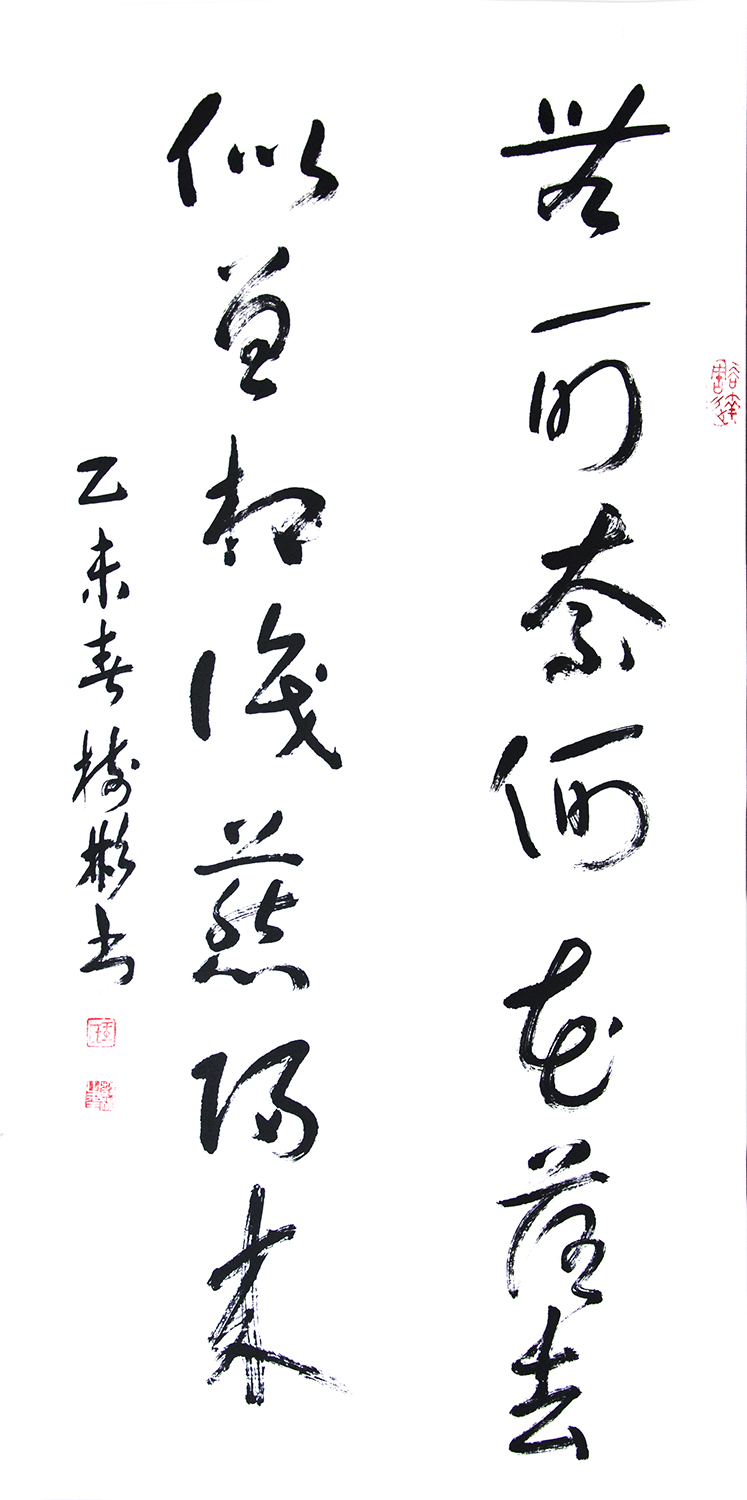 豁達
無可奈何花落去
似曾相識燕歸來
乙未春樹彬書